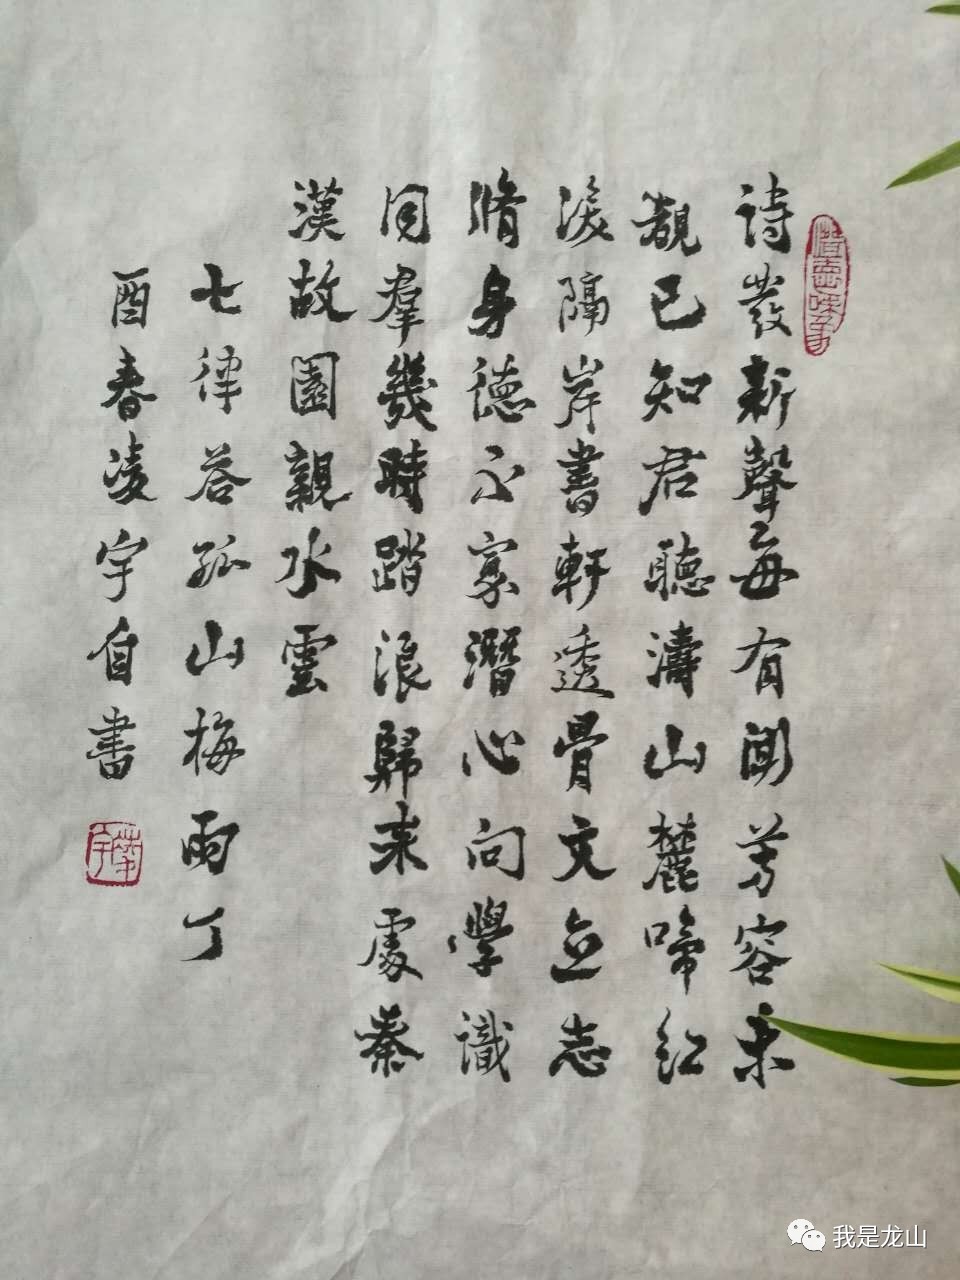 詩發新聲每有聞芳容未
覩已知君聽濤山麓啼紅
淚隔岸書軒透骨文立志
脩身德不寡潛心向學識
同羣幾時踏浪歸来處秦
漢故園親水雲
七律答孤山梅雨丁
酉春凌宇自書
我是龙山